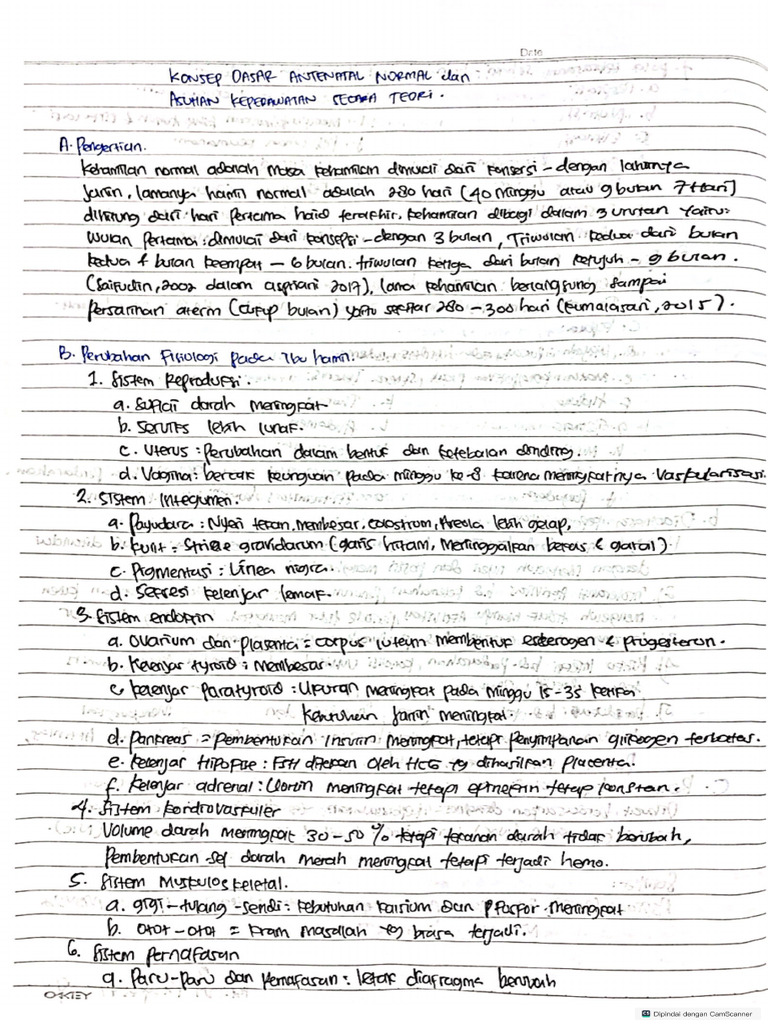 Date
KONSEP DASAR ANTENATAL NORMAL dan
ASUHAN KEPERAWATAN SECARA TEORI.
A. Pengertian.
Kehamilan normal adalah masa kehamilan dimulai dari konsepsi - dengan lahirnya
janin, lamanya hamil normal adalah 280 hari (40 minggu atau 9 bulan 7 Hari)
dihitung dari hari pertama haid terakhir. Kehamilan dibagi dalam 3 urutan yaitu:
wulan pertama: dimulai dari konsepsi - dengan 3 bulan, Triwulan kedua dari bulan
kedua f bulan keempat - 6 bulan. triwulan ketiga dari bulan ketujuh - 9 bulan.
(Saifudin, 2002 dalam aspiari 2017), lama kehamilan berlangsung sampai
persalinan aterm (cukup bulan) yaitu sekitar 280 - 300 hari (Kumalasari, 2015).
B. Perubahan Fisiologi pada Ibu hamil:
1. Sistem Reproduksi.
a. Suplai darah meningkat
b. Serviks lebih lunak.
c. Uterus : Perubahan dalam bentuk dan ketebalan dinding.
d. Vagina: bercak keunguan pada minggu ke-8 karena meningkatnya Vaskularisasi.
2. Sistem Integumen.
a. Payudara : Nyeri tekan, membesar, colostrum, Areola lebih gelap,
b. kulit = Striae gravidarum (garis hitam, Meninggalkan bekas & gatal)
c. Pigmentasi : Linea nigra.
d. Sekresi kelenjar lemak.
3. Sistem endokrin
a. Ovarium dan plasenta = corpus luteum membentuk esterogen & progesteron.
b. Kelenjar tyroid : Membesar
c. kelenjar Paratyroid : Ukuran meningkat pada minggu 15-35 ketika
kebutuhan janin meningkat.
d. Pankreas = Pembentukan Insulin meningkat, tetapi penyimpanan glikogen terbatas.
e. Kelenjar Hipofise : FSH ditekan oleh HCG yg dihasilkan placenta.
f. Kelenjar adrenal : meningkat tetapi epinefrin tetap konstan.
4. Sistem Kardiovaskuler
Volume darah meningkat 30-50 % tetapi tekanan darah tidak berubah,
Pembentukan sel darah merah meningkat tetapi terjadi hemo.
5. Sistem Muskuloskeletal.
a. gigi - tulang - sendi : kebutuhan kalsium dan fosfor meningkat
b. otot-otot = kram masalah yg biasa terjadi.
6. Sistem Pernafasan
a. Paru-paru dan Pernafasan : letak diafragma berubah
O-KEY
CS Dipindai dengan CamScanner